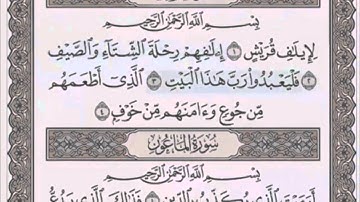 بِسْمِ ٱللَّهِ ٱلرَّحْمَٰنِ ٱلرَّحِيمِ
لِإِيلَٰفِ قُرَيْشٍ ١ إِۦلَٰفِهِمْ رِحْلَةَ ٱلشِّتَآءِ وَٱلصَّيْفِ
٢ فَلْيَعْبُدُوا۟ رَبَّ هَٰذَا ٱلْبَيْتِ ٣ ٱلَّذِىٓ أَطْعَمَهُم
مِّن جُوعٍ وَءَامَنَهُم مِّنْ خَوْفٍۭ ٤
سُورَةُ ٱلْمَاعُونِ
بِسْمِ ٱللَّهِ ٱلرَّحْمَٰنِ ٱلرَّحِيمِ
أَرَءَيْتَ ٱلَّذِى يُكَذِّبُ بِٱلدِّينِ ١ فَذَٰلِكَ ٱلَّذِى يَدُعُّ